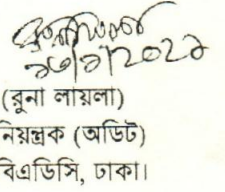 (রুনা লায়লা)
নিয়ন্ত্রক (অডিট)
বিএডিসি, ঢাকা।